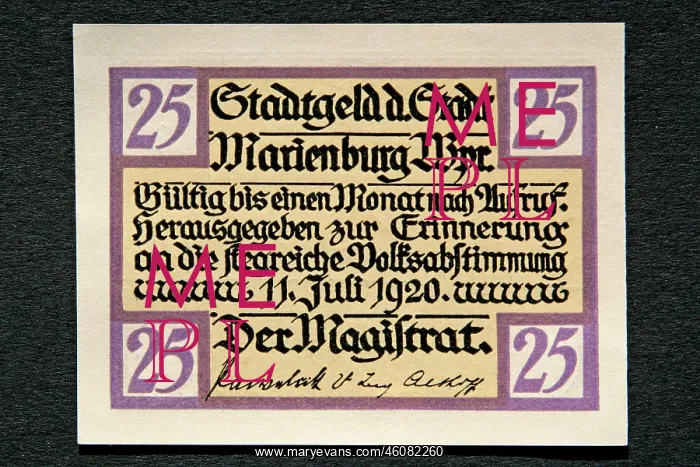 25
Stadtgeld d. Stadt
25
Marienburg Wpr.
Gültig bis einen Monat nach Aufruf.
Herausgegeben zur Erinnerung
an die siegreiche Volksabstimmung
11. Juli 1920.
Der Magistrat.
25
25
ME
PL
ME
PL
www.maryevans.com/46082260